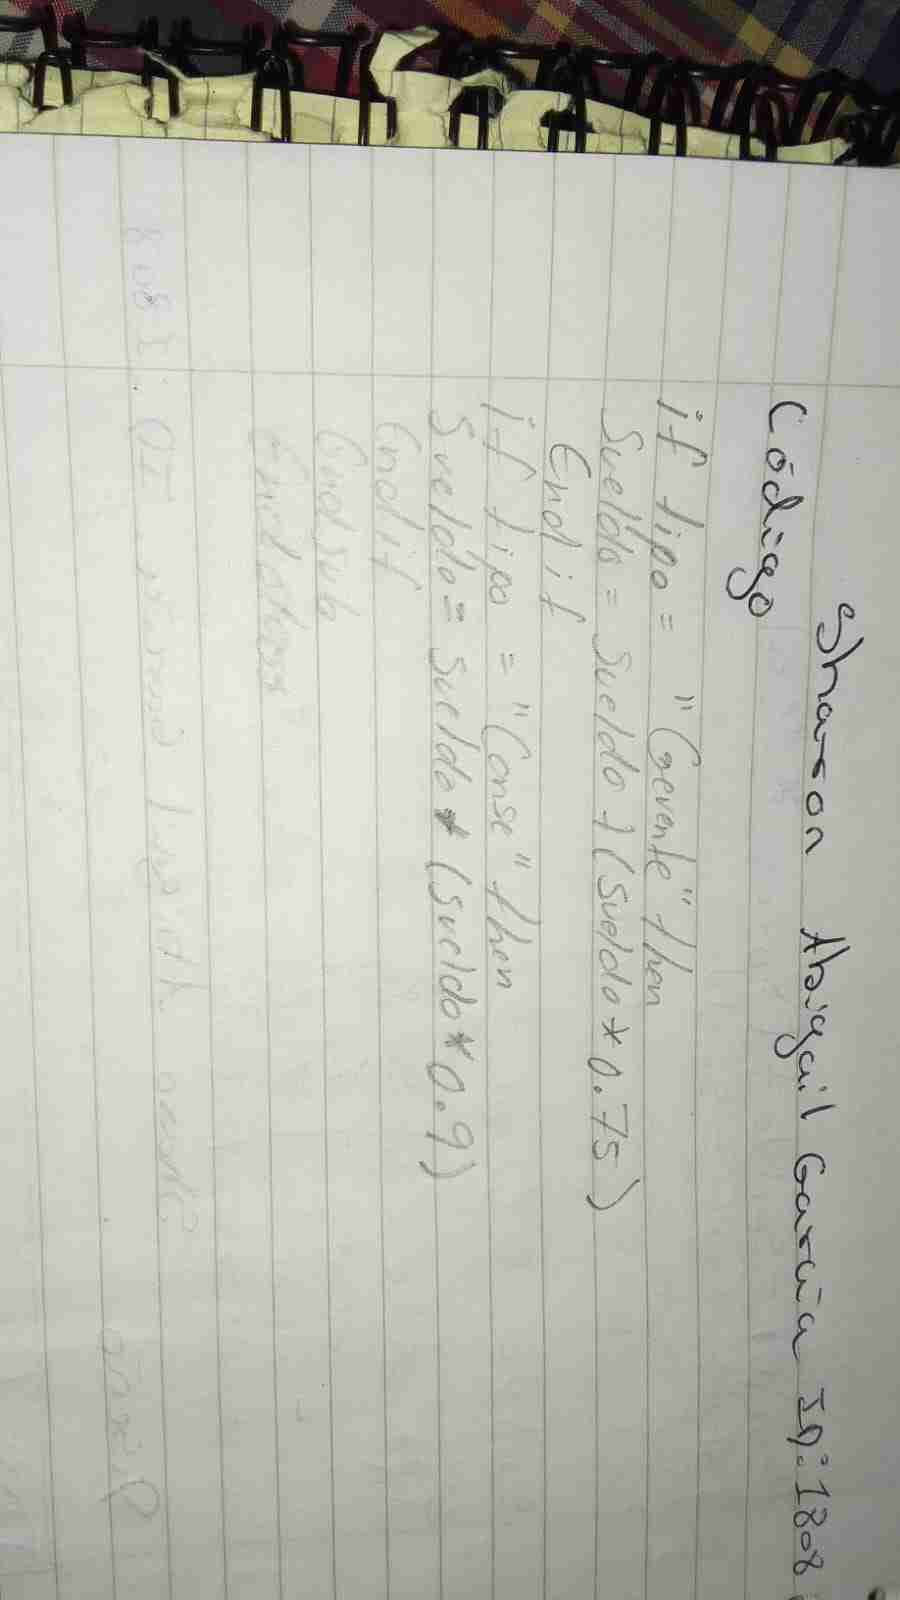 Sharon Abigail García ID: 1808
Código
if tipo = "Gerente" then
Sueldo = Sueldo + (Sueldo * 0.75)
End if
if tipo = "Conse" then
Sueldo = Sueldo * (Sueldo * 0.9)
End if
End sub
End class